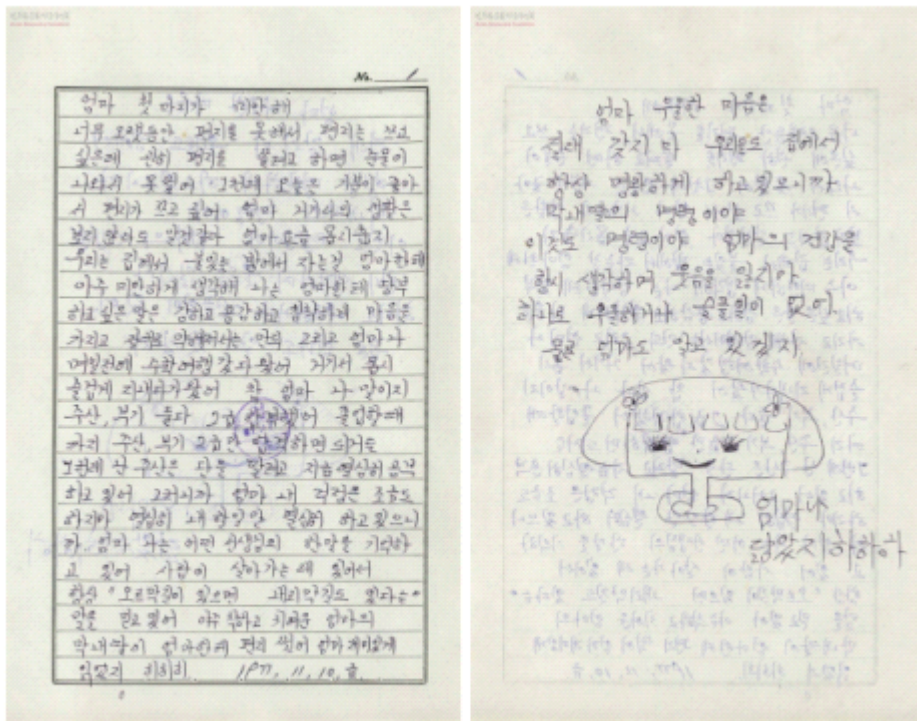 No. 1
엄마 첫 마디가 미안해
너무 오랫동안 편지를 못해서 편지는 쓰고
싶은데 편지를 쓸려고 하면 눈물이
나와서 못 썼어 그런데 오늘은 기분이 좋아
서 편지가 쓰고 싶어 엄마 거기서의 생활은
보지 않아도 알것같아 엄마 요즘 몹시 춥지
우리는 집에서 불있는 방에서 자는걸 엄마한테
아주 미안하게 생각해 나는 엄마한테 당부
하고 싶은 말은 강하고 용감하고 침착하게 마음을
가지고 그리고 엄마 나
며칠전에 수학여행 갔다 왔어 거기서 몹시
즐겁게 지내다가 왔어 참 엄마 나 말이지
주산, 부기 둘다 2급 합격했어 졸업할때
까지 주산, 부기 2급만 합격하면 되거든
그런데 난 주산은 단을 딸려고 지금 열심히 공부
하고 있어 그러니까 엄마 내 걱정은 조금도
하지마 열심히 내 할일만 열심히 하고 있으니
까. 엄마 나는 어떤 선생님의 한말을 기억하
고 있어 사람이 살아가는데 있어서
항상 "오르막길이 있으면 내리막길도 있다는"
말을 믿고 있어 아주 착하고 귀여운 엄마의
막내딸이 엄마한테 편지 썼어 엄마 재미있게
읽었지 히히히 1977. 11. 10. 금
엄마 우울한 마음은
절대 갖지마 우리들도 집에서
항상 명랑하게 하고 있으니까
막내딸의 명령이야
이것도 명령이야 엄마의 건강을
항시 생각하며 웃음을 잃지마.
하나도 우울하거나 슬플일이 없어.
물론 엄마도 알고 있겠지.
엄마나
닮았지 하하하